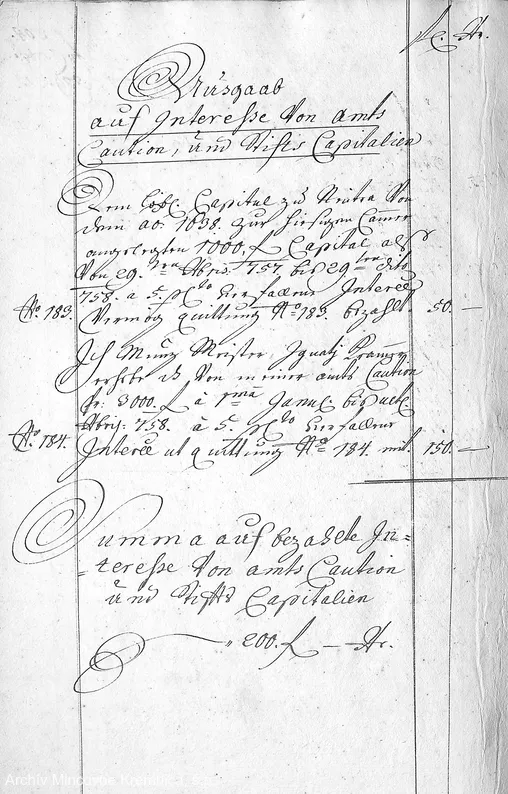 fl. Xr.
Ausgaab
auf Interesse Von Amts
Caution, und Stifts Capitalien
Dem Löbl. Capital zu Neutra Von
dem ao. 1698. zur hiesigen Camer
angelegten 1000. fl Capital als
Von 29.ten Abris 757. bis 29ten dito
758. a 5. pCto Verfallene Interee
No. 183. Vermög quittung No 183. bezahlt. 50. —
Ich Münz Meister, Ignatz Kramer
erhebe Von meiner amts Caution
Pr. 3000. fl à 1ma bis
Abris 758. à 5. pCto Verfallene
No. 184. Interee ut quittung No 184. mit 150. —
Summa auf bezahlte In=
=teresse Von amts Caution
und Stifts Capitalien
200. fl — Xr.
Archiv Mincovne Kremnica